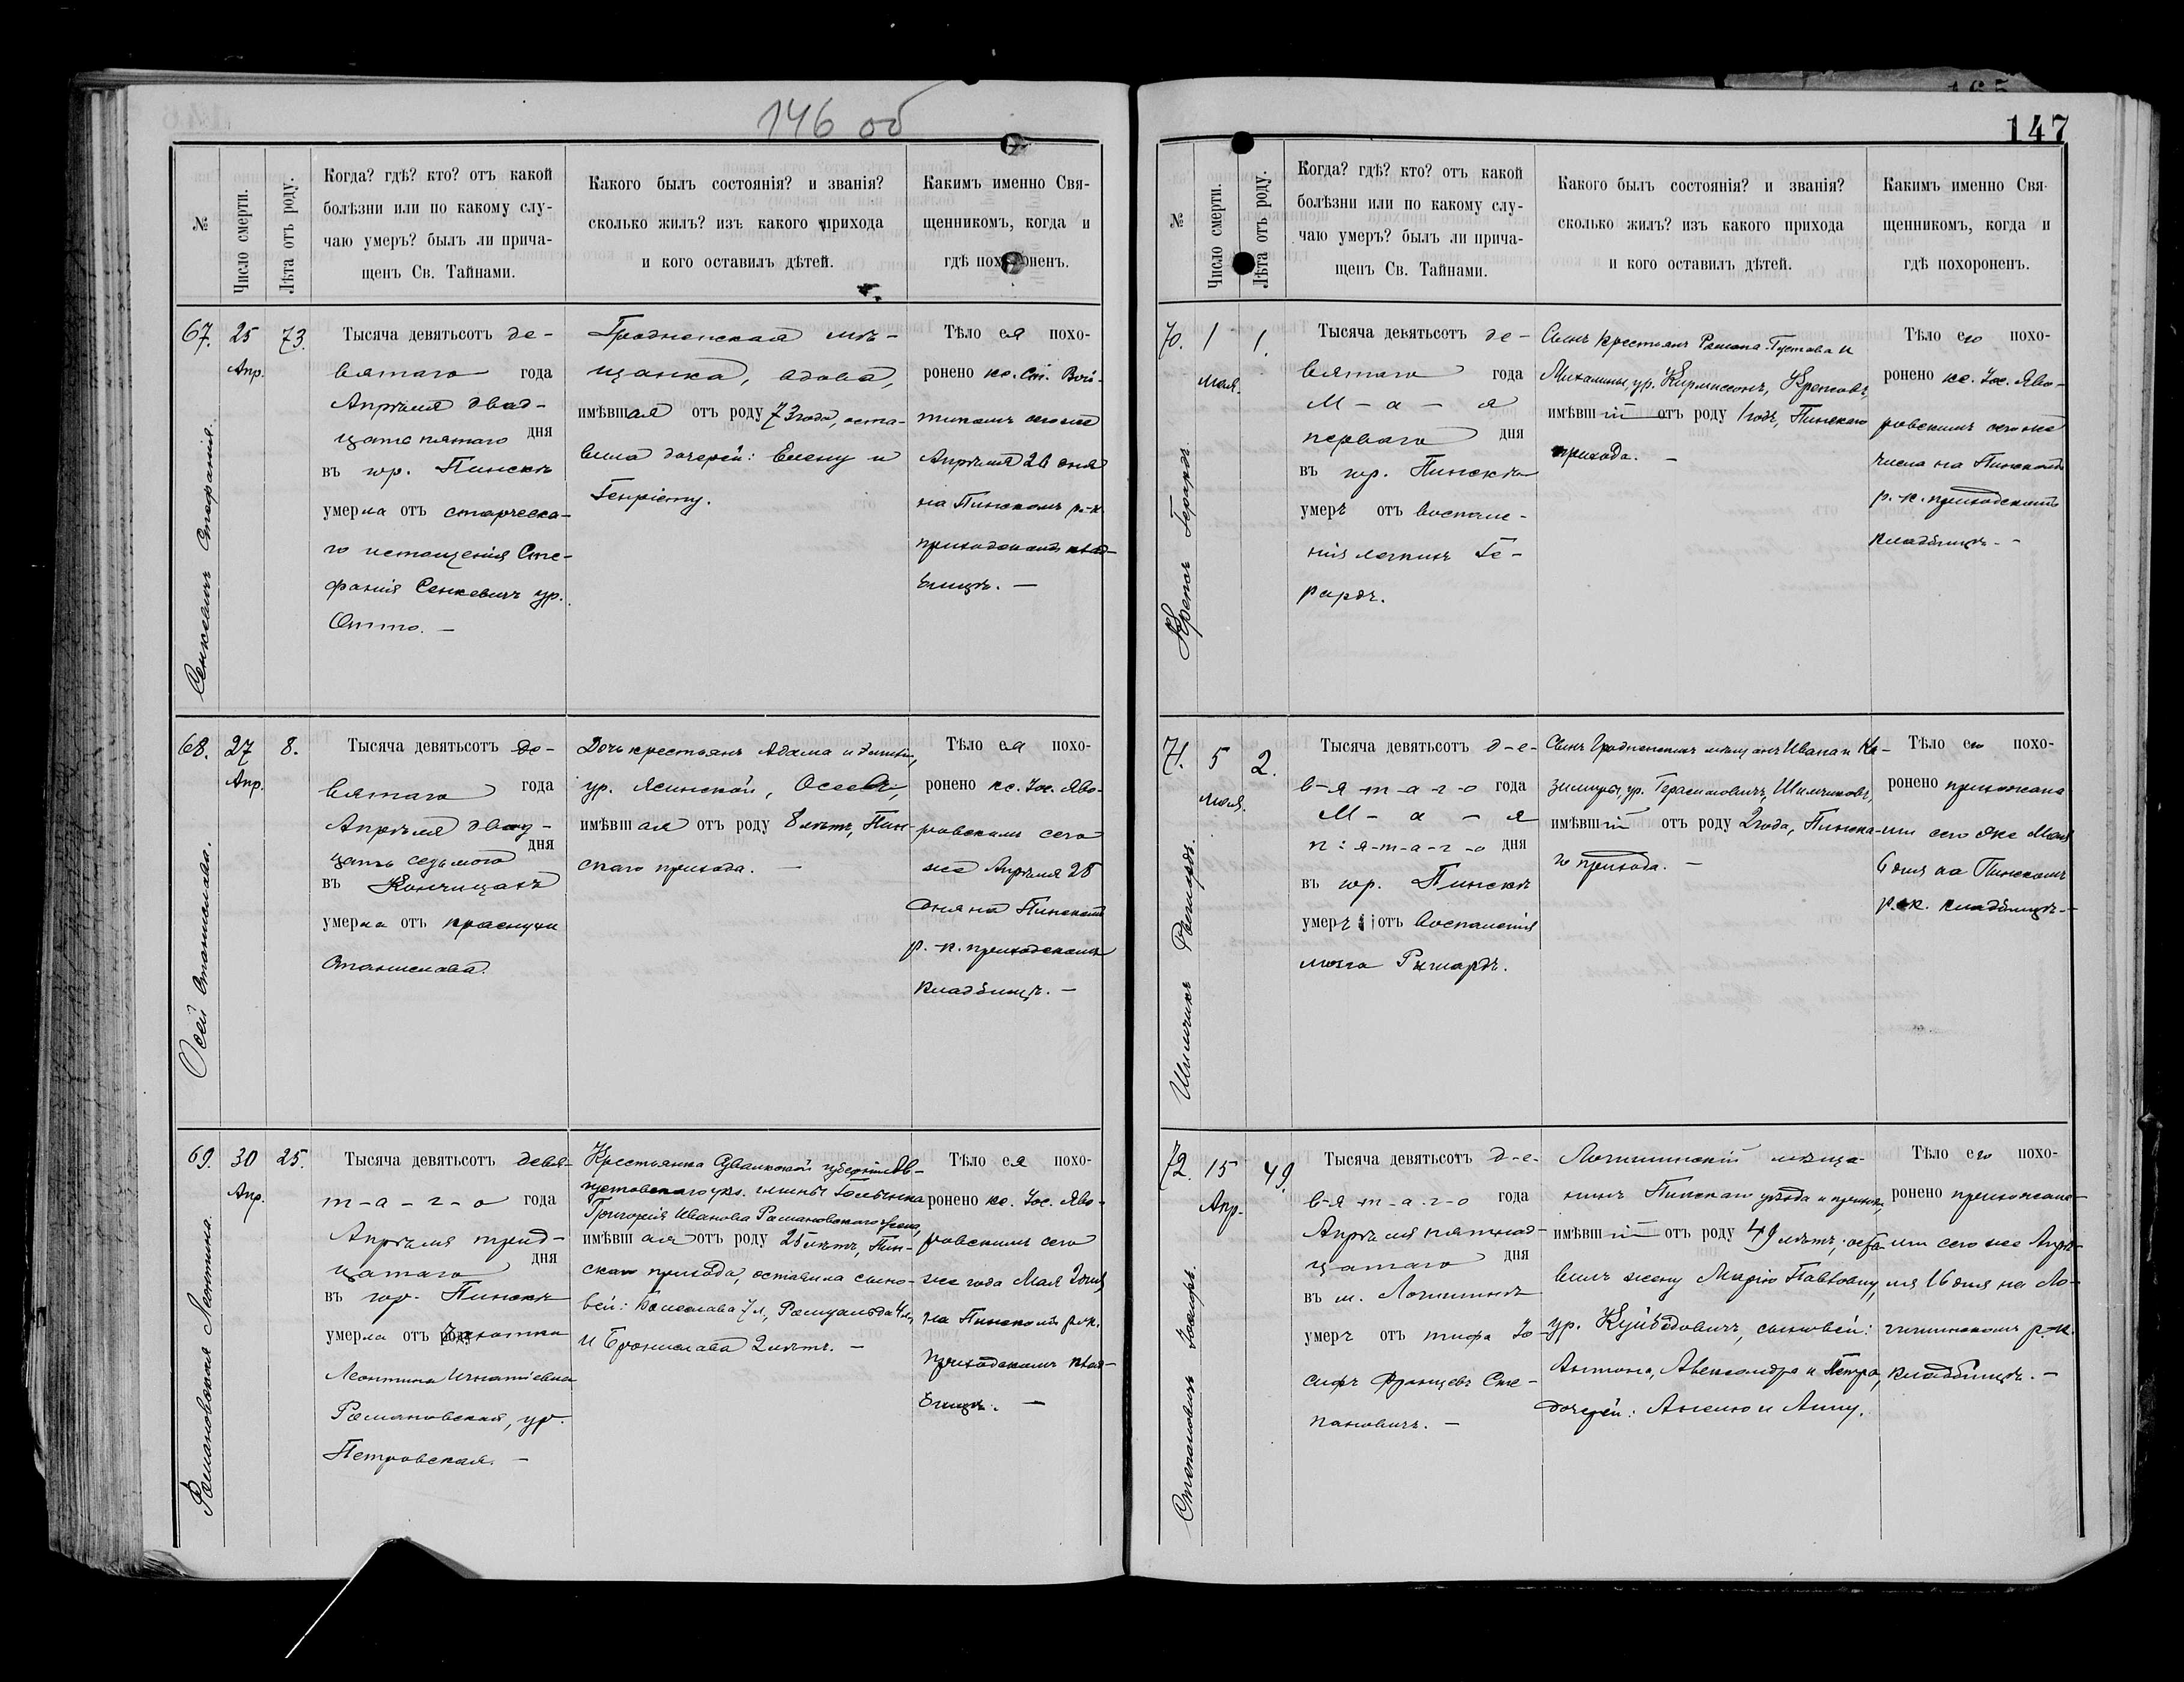 146 об
№
Число смерти.
Лѣта отъ роду.
Когда? гдѣ? кто? отъ какой
болѣзни или по какому слу-
чаю умеръ? былъ ли прича-
щенъ Св. Тайнами.
Какого былъ состоянія? и званія?
сколько жилъ? изъ какого прихода
и кого оставилъ дѣтей.
Какимъ именно Свя-
щенникомъ, когда и
гдѣ похороненъ.
67.
Сенкевичъ Стефанія.
25
Апр.
73.
Тысяча девятьсотъ де-
вятаго года
Апрѣля двад-
цать пятаго дня
въ гор. Пинскѣ
умерла отъ старческа-
го истощенія Сте-
фанія Сенкевичъ ур.
Отто. —
Гродненская мѣ-
щанка, вдова,
имѣвшая отъ роду 73 года, оста-
вила дочерей: Елену и
Генріету.
Тѣло ея похо-
ронено кс. Ст. Вой-
тикомъ сего же
Апрѣля 26 дня
на Пинскомъ р.-к.
приходскомъ клад-
бищѣ. —
68.
Осей Станислава.
27
Апр.
8.
Тысяча девятьсотъ де-
вятаго года
Апрѣля двад-
цать седьмого дня
въ Кончицахъ
умерла отъ краснухи
Станислава.
Дочь крестьянъ Адама и Эмиліи,
ур. Ясинской, Осеевъ,
имѣвшая отъ роду 8 лѣтъ, Пин-
скаго прихода. —
Тѣло ея похо-
ронено кс. Іос. Яво-
ровскимъ сего
же Апрѣля 28
дня на Пинскомъ
р.-к. приходскомъ
кладбищѣ. —
69.
Романовская Леонтина.
30
Апр.
25.
Тысяча девятьсотъ девя-
т-а-г-о года
Апрѣля трид-
цатаго дня
въ гор. Пинскѣ
умерла отъ чахотки
Леонтина Игнатіевна
Романовская, ур.
Петровская. —
Крестьянка Сувалкской губерніи Ав-
густовскаго уѣз. гмины
Григорія Иванова Романовскаго жена,
имѣвшая отъ роду 25 лѣтъ, Пин-
скаго прихода, оставила сыно-
вей: Болеслава 7 л., Ромуальда 4 л.,
и Бронислава 2 лѣтъ. —
Тѣло ея похо-
ронено кс. Іос. Яво-
ровскимъ сего
же года Мая 2 дня
на Пинскомъ р.-к.
приходскомъ клад-
бищѣ. —
147
№
Число смерти.
Лѣта отъ роду.
Когда? гдѣ? кто? отъ какой
болѣзни или по какому слу-
чаю умеръ? былъ ли прича-
щенъ Св. Тайнами.
Какого былъ состоянія? и званія?
сколько жилъ? изъ какого прихода
и кого оставилъ дѣтей.
Какимъ именно Свя-
щенникомъ, когда и
гдѣ похороненъ.
70.
Герардъ.
1
Мая.
1.
Тысяча девятьсотъ де-
вятаго года
М-а-я
перваго дня
въ гор. Пинскѣ
умеръ отъ воспале-
нія легкихъ Ге-
рардъ.
Сынъ крестьянъ Романа-Густава и
Михалины, ур.
имѣвшій отъ роду 1 годъ, Пинскаго
прихода. —
Тѣло его похо-
ронено кс. Іос. Яво-
ровскимъ сего же
числа на Пинскомъ
р.-к. приходскомъ
кладбищѣ. —
71.
Шимчикъ Рышардъ.
5
Мая.
2.
Тысяча девятьсотъ д-е-
в-я-т-а-г-о года
М-а-я
п-я-т-а-г-о дня
въ гор. Пинскѣ
умеръ отъ воспаленія
мозга Рышардъ.
Сынъ Гродненскихъ мѣщанъ Ивана и Ка-
зимиры, ур. Герасимовичъ, Шимчиковъ,
имѣвшій отъ роду 2 года, Пинска-
го прихода. —
Тѣло его похо-
ронено прихожана-
ми сего же Мая
6 дня на Пинскомъ
р.-к. кладбищѣ. —
72.
Степановичъ Іосифъ.
15
Апр.
49.
Тысяча девятьсотъ д-е-
в-я-т-а-г-о года
Апрѣля пятнад-
цатаго дня
въ м. Логишинѣ
умеръ отъ тифа Іо-
сифъ Францевъ Сте-
пановичъ. —
Логишинскій мѣща-
нинъ Пинскаго уѣзда и прихода,
имѣвшій отъ роду 49 лѣтъ; оста-
вилъ жену Марію Павлову,
ур. сыновей:
Антона, Александра и Петра,
дочерей: Анелю и Анну.
Тѣло его похо-
ронено прихожана-
ми сего же Апрѣ-
ля 16 дня на Ло-
гишинскомъ р.-к.
кладбищѣ. —